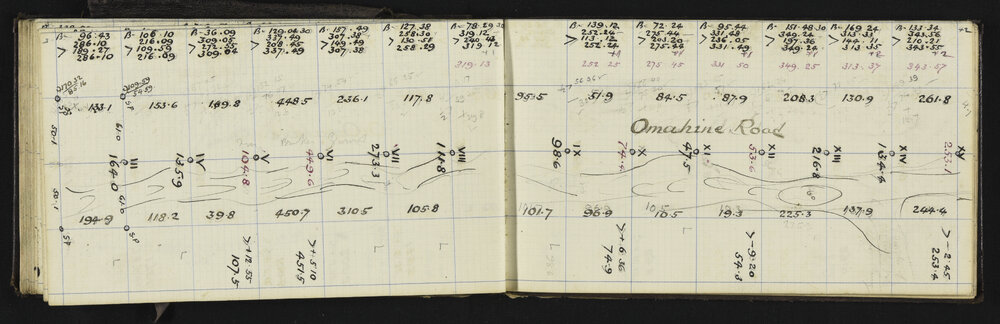 B- 96.43
286.10
> 189.27
286.10
B- 108.10
216.09
> 109.59
216.09
B- 36.09
309.05
> 272.55
309.04
B- 129.04.30
337.49
> 208.45
337.49
B- 157.49
307.38
> 149.49
307.38
B- 127.38
258.30
> 130.58
258.29
B- 78.29.30
319.12
> 240.43
319.12
B- 139.12
252.24
> 113.12
252.24
B- 72.24
275.44
> 203.20
275.44
B- 95.44
331.48
> 236.05
331.49
B- 151.48.30
349.24
> 197.36
349.24
B- 169.24
313.31
> 144.11
313.35
B- 133.34
343.56
> 210.21
343.55
+1
319.13
+1
252 25
+1
275.45
+1
331 50
+1
349.25
+2
313.37
+2
343.57
+2
133.1
153.6
149.8
448.5
236.1
117.8
95.5
51.9
84.5
87.9
208.3
130.9
261.8
SP
SP
50.1
61.0
Omahine Road
III
164.0
IV
135.9
V
104.8
VI
449.6
VII
273.3
VIII
111.8
IX
98.6
X
74.4
XI
47.5
XII
53.6
XIII
216.8
XIV
134.4
XV
253.1
50.1
61.0
194.9
118.2
39.8
450.7
310.5
105.8
101.7
96.9
10.5
19.3
225.3
137.9
244.4
SP
SP
>+12.55
107.5
>+5.10
451.5
>+6.36
74.9
>-9.20
54.8
>-2.45
253.4